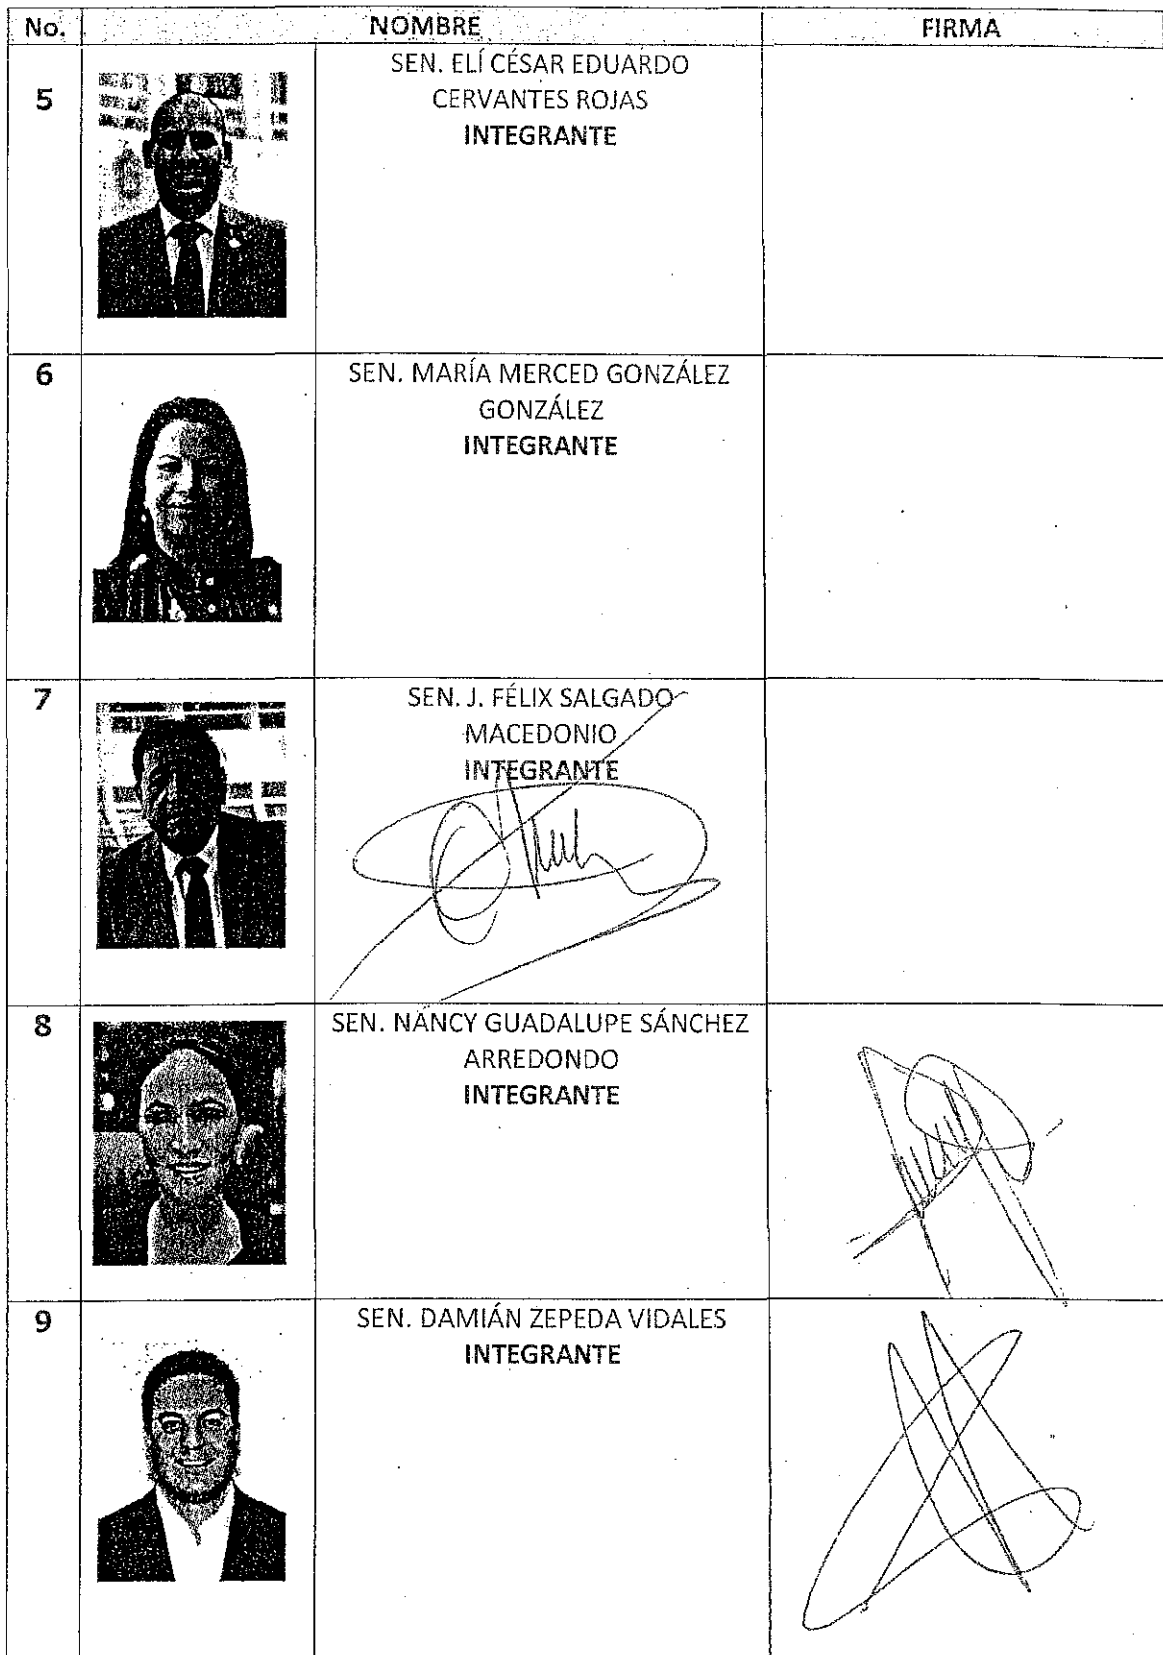 No. NOMBRE FIRMA
5
SEN. ELÍ CÉSAR EDUARDO
CERVANTES ROJAS
INTEGRANTE
6
SEN. MARÍA MERCED GONZÁLEZ
GONZÁLEZ
INTEGRANTE
7
SEN. J. FÉLIX SALGADO
MACEDONIO
INTEGRANTE
8
SEN. NANCY GUADALUPE SÁNCHEZ
ARREDONDO
INTEGRANTE
9
SEN. DAMIÁN ZEPEDA VIDALES
INTEGRANTE